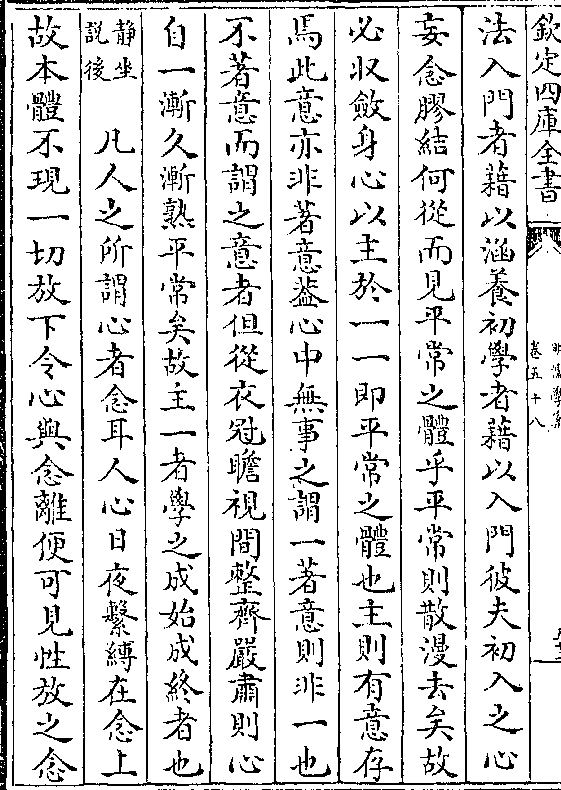 欽定四庫全書
卷五十八
法入門者藉以涵養初學者藉以入門彼夫初入之心
妄念膠結何從而見平常之體乎平常則散漫去矣故
必收斂身心以主於一一即平常之體也主則有意存
焉此意亦非著意葢心中無事之謂一著意則非一也
不著意而謂之意者但從衣冠瞻視間整齊嚴肅則心
自一漸久漸熟平常矣故主一者學之成始成終者也
静坐
説後
凡人之所謂心者念耳人心日夜繫縛在念上
故本體不現一切放下令心與念離便可見性放之念